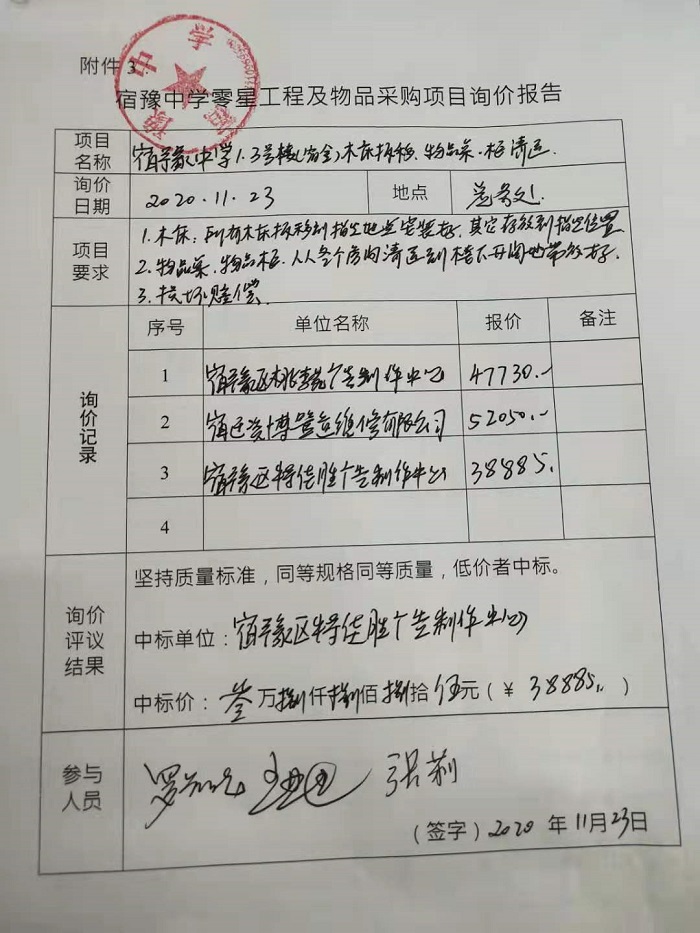 附件 3
中学
宿豫中学零星工程及物品采购项目询价报告
项目名称 宿豫中学1.3号楼(宿舍)木床拆移.物品柜清运.
询价日期 2020.11.23 地点 总务处.
项目要求 1.木床:所有木床拆移到指定地点安装好.其它存放到指定位置
2.物品柜.从各个房间清运到楼下
3.损坏赔偿.
询价记录 序号 单位名称 报价 备注
1 宿豫区广告制作中心 47730.-
2 宿迁博维修有限公司 52050.-
3 宿豫区特佳胜广告制作中心 38885.
4
询价评议结果 坚持质量标准，同等规格同等质量，低价者中标。
中标单位：宿豫区特佳胜广告制作中心
中标价：叁万捌仟捌佰捌拾伍元（¥ 38885.）
参与人员 张莉
（签字）2020 年11月23日